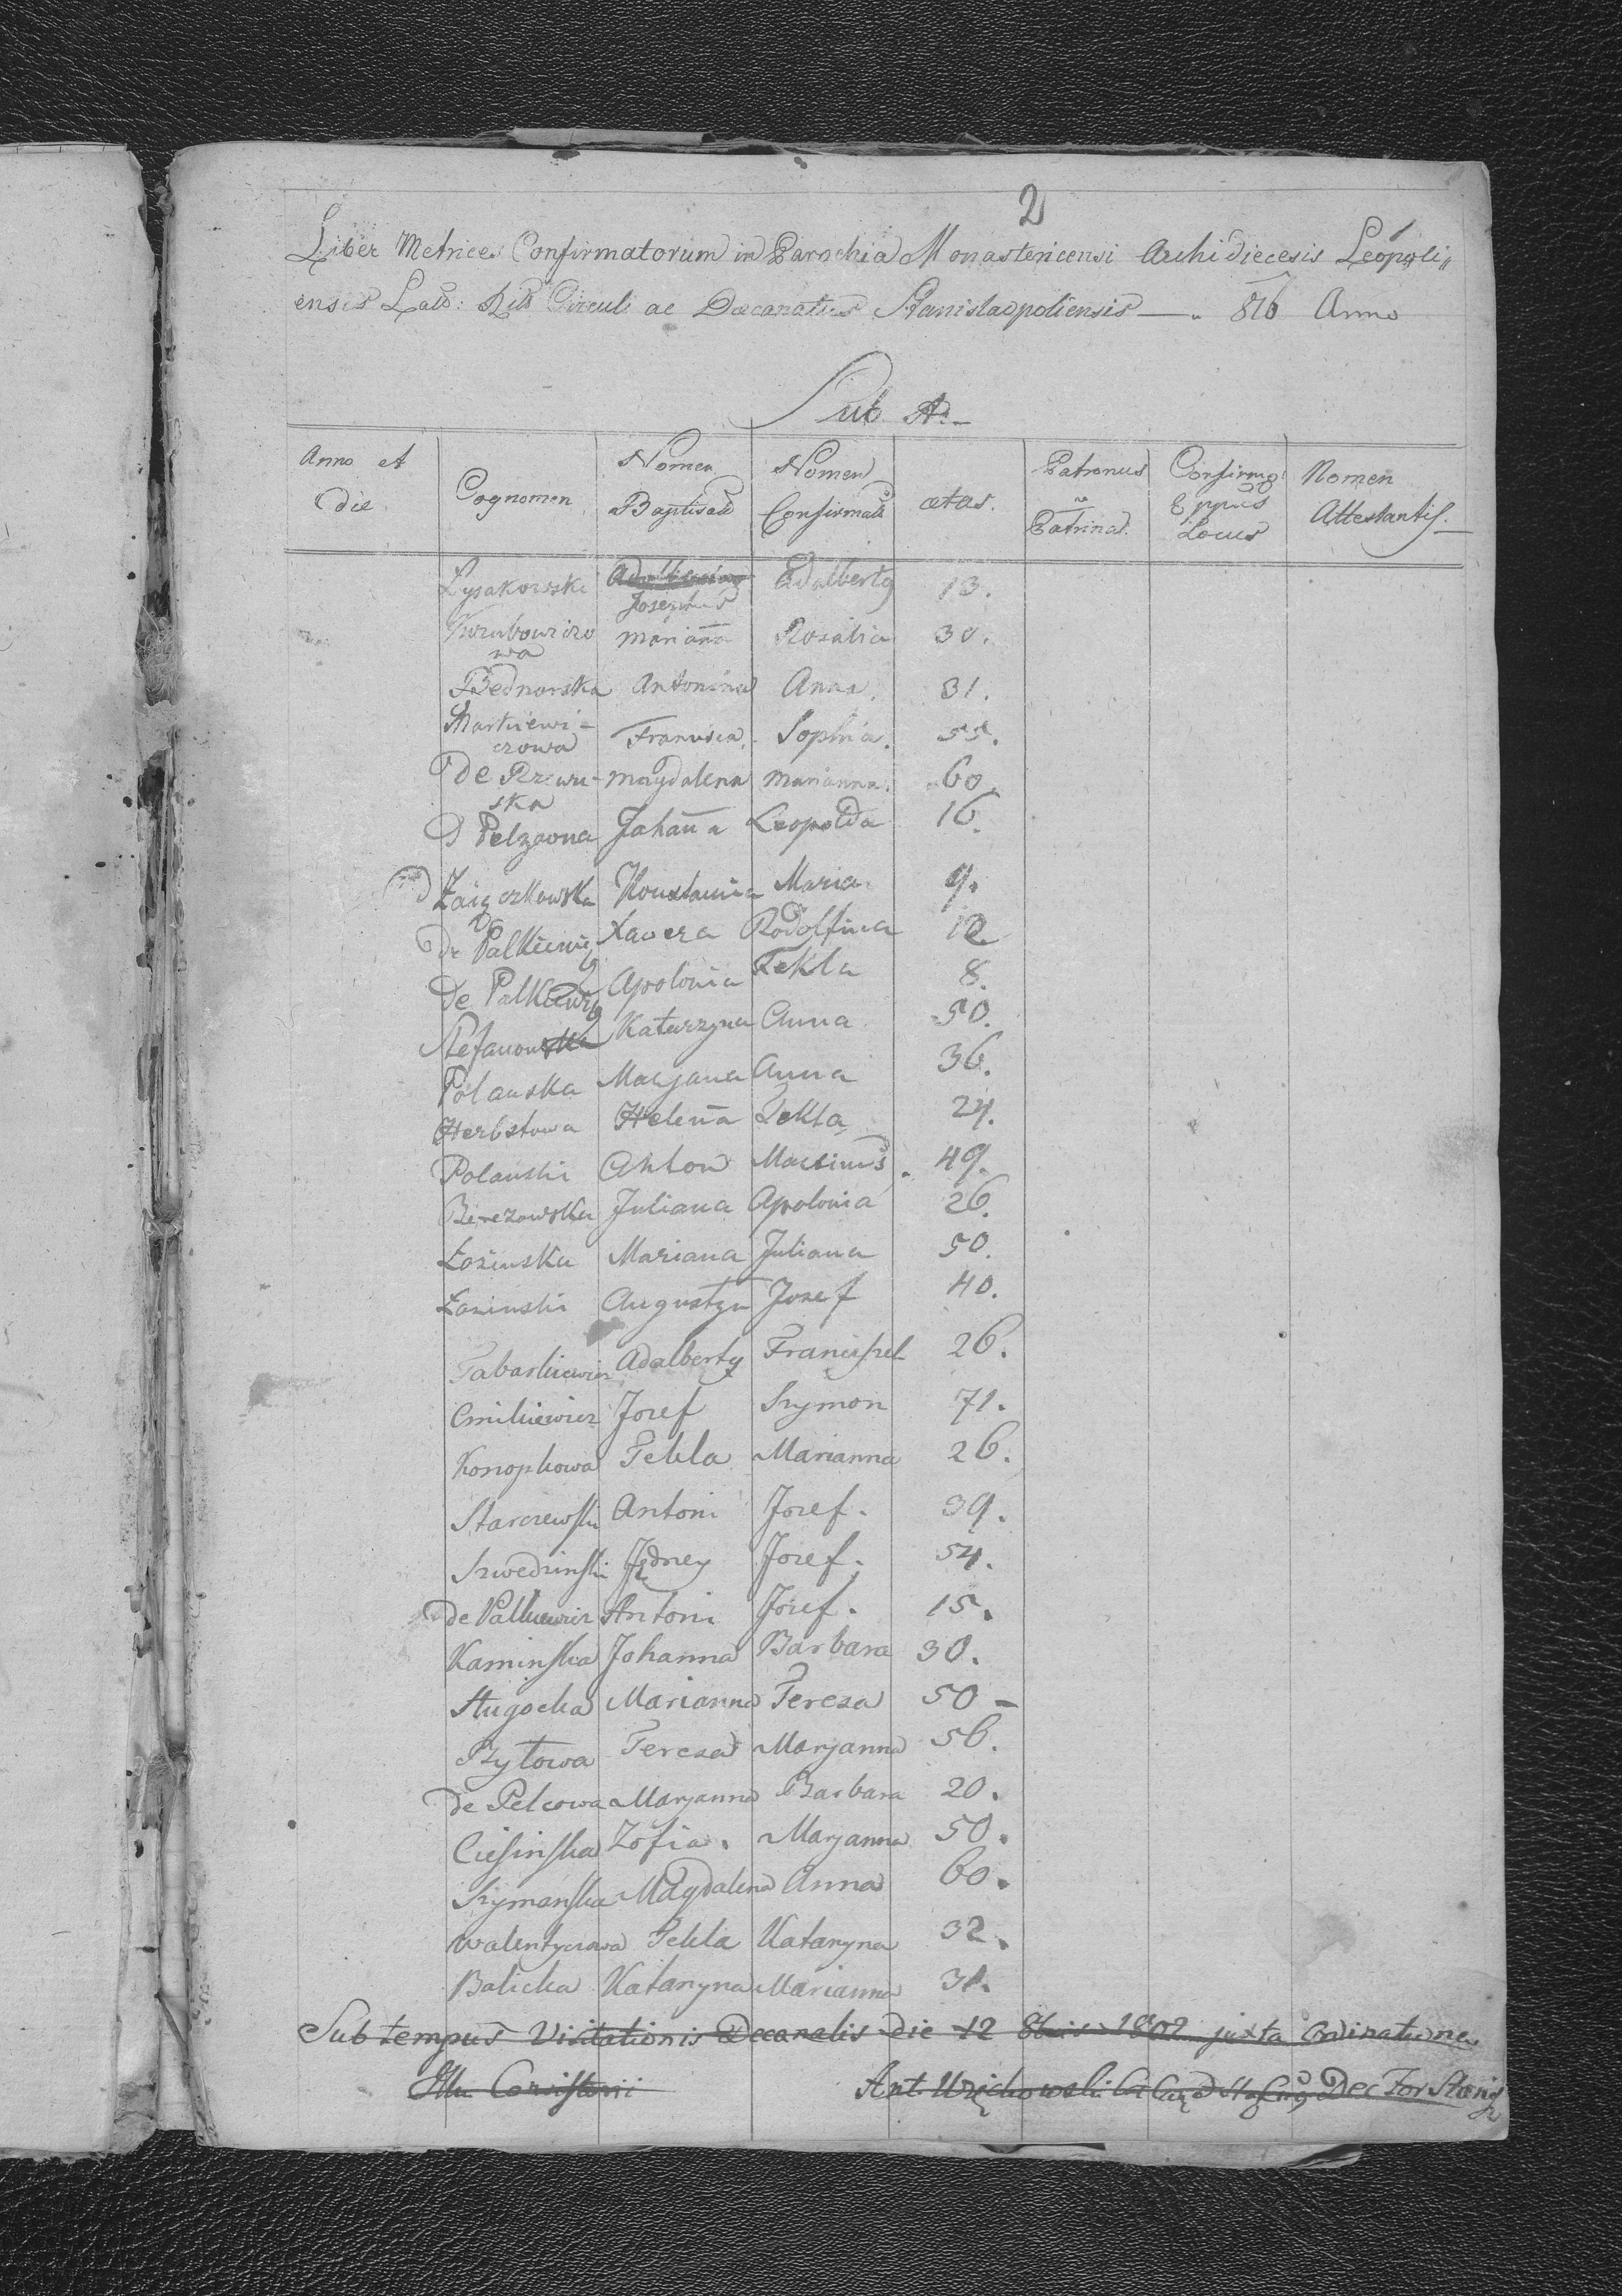 2
Liber Metrices Confirmatorum in Parochia Monastericensi Archidiecesis Leopoli„
ensis Latt: Ritt Circuli ac Decanatus Stanislaopoliensis —„ 816 Anno
Sub A.—
Anno et die Cognomen Nomen Baptisatt Nomen Confirmatt ætas. Patronus Patrina. Confirmo: Eppus Locus Nomen Attestantis.
Lysakowski Josephus Adalberty 13.
wa Marianna Rosalia 30.
Bednarska Antonina Anna. 31.
Markiewi-
czowa Francisca. Sophia. 55.
de Rzewu-
ska Magdalena Marianna. 60.
D Pelzowna Johanna Leopolda 16.
Zaiączkowska Konstancia Maria 9.
De Palkiewicz Xawera Rodolfina 12
De Palkiewicz Apolonia Tekla 8.
Stefanowska Katarzyna Anna 50.
Polanska Maryana Anna 36.
Herbstowa Helena Tekla 24.
Polanski Anton Marcinus. 49.
Berezowska Juliana Apolonia 26.
Łozinska Mariana Juliana 50.
Łozinski Augustyn Jozef 40.
Tabarkiewicz Adalberty Franciszek 26.
Cmikiewicz Jozef Szymon 71.
Konopkowa Tekla Marianna 26.
Starczewski Antoni Jozef. 39.
Szwedzinski Jędrzey Jozef. 54.
de Palkiewicz Antoni Jozef. 15.
Kaminska Johanna Barbara 30.
Sługocka Marianna Teresa 50 –
Rzytowa Teresa Maryanna 56.
de Pelcowa Maryanna Barbara 20.
Ciesinska Zofia. Maryanna 50.
Szymanska Magdalena Anna 60.
Walentyczowa Tekla Katarzyna 32.
Balicka Katarzyna Marianna 31.
Sub tempus Visitationis Decanalis die 12 8bris 1802 juxta Ordinatione
Illu Consistorii Ant. Wzichowski Dec For Stanis